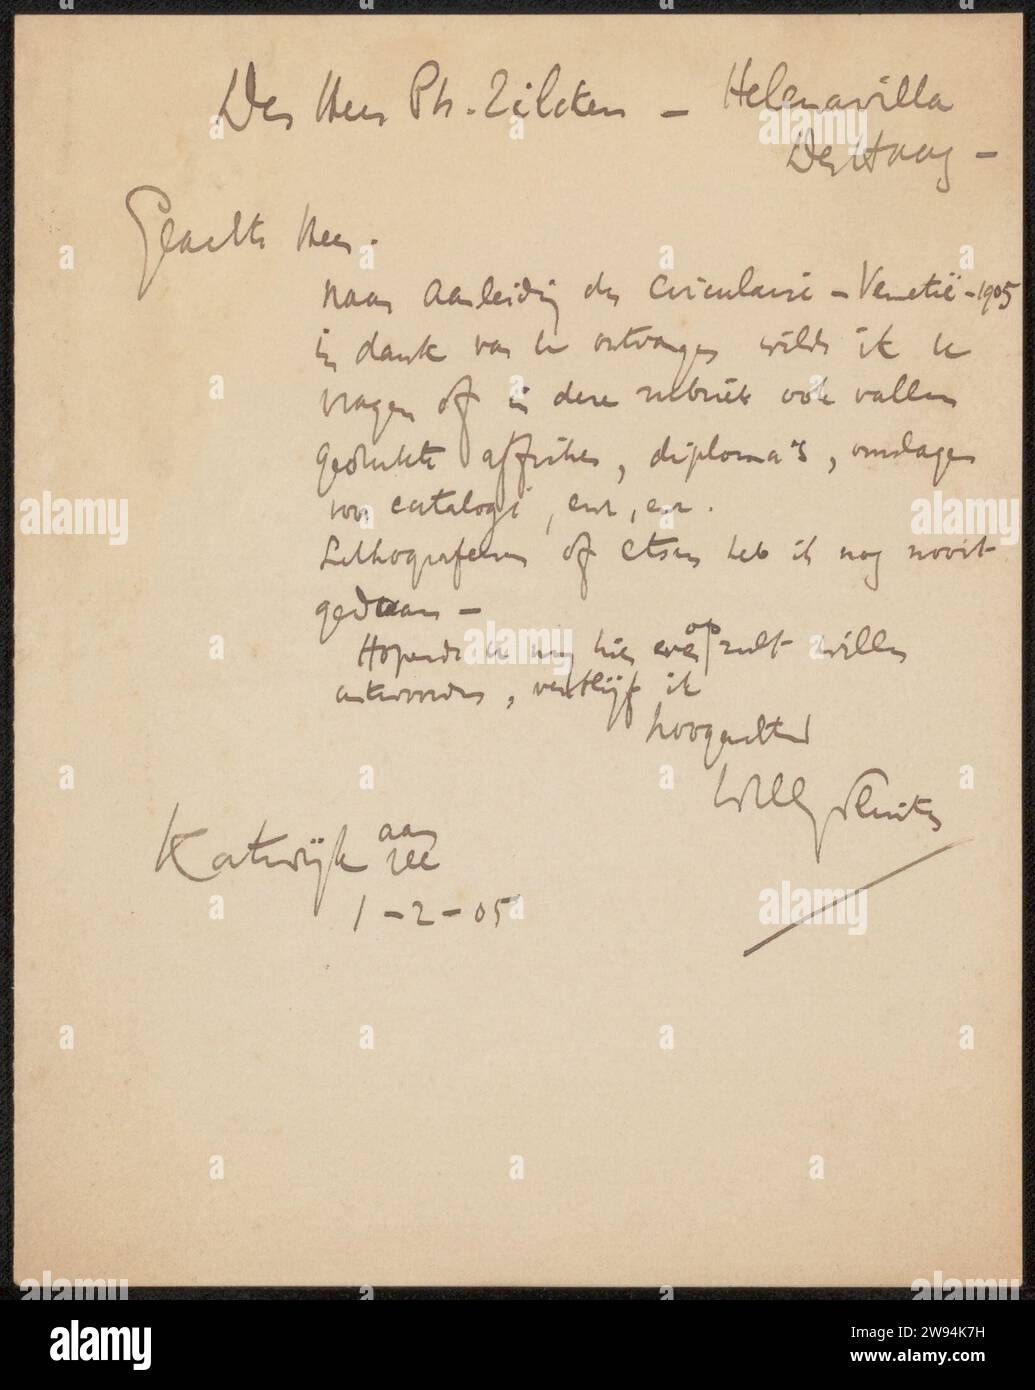 Den Heer Ph. Zilcken — Helenavilla
Den Haag —
Geachte Heer.
naar aanleiding der circulaire — Venetië — 1905
in dank van u ontvangen wilde ik u
vragen of in deze rubriek ook vallen
gedrukte affiches, diploma's, omslagen
voor catalogi, enz, enz.
Lithografeeren of etsen heb ik nog nooit
gedaan —
Hopende u mij hier op wilt willen
antwoorden, verblijf ik
hoogachtend
Willy Sluiter
Katwijk aan zee
1-2-05
alamy
Image ID: 2W94K7H
www.alamy.com